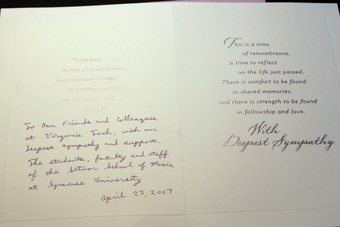 To Our Friends and Colleagues
at Virginia Tech, with our
deepest sympathy and support.
The students, faculty and staff
of the Setnor School of Music
at Syracuse University
April 23, 2007
This is a time
of remembrance,
a time to reflect
on the life just passed.
There is comfort to be found
in shared memories,
and there is strength to be found
in fellowship and love.
With
Deepest Sympathy